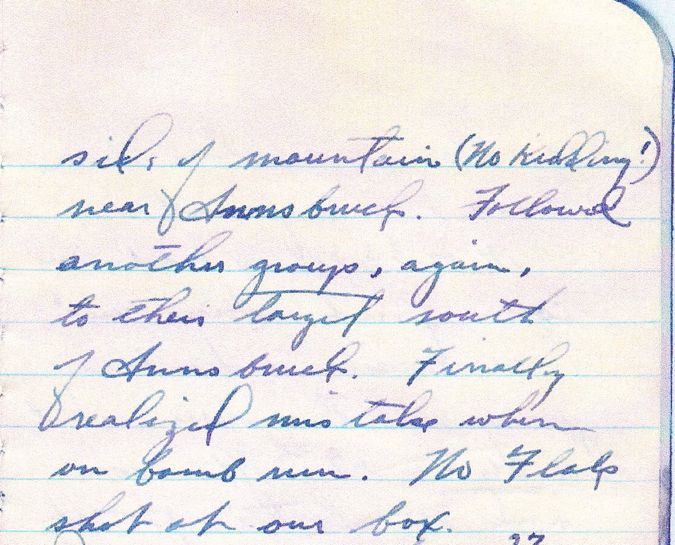 side of mountain (No Kidding!)
near Innsbruck. Followed
another group, again,
to their target south
of Innsbruck. Finally
realized mistake when
on bomb run. No Flak
shot at our box.
27